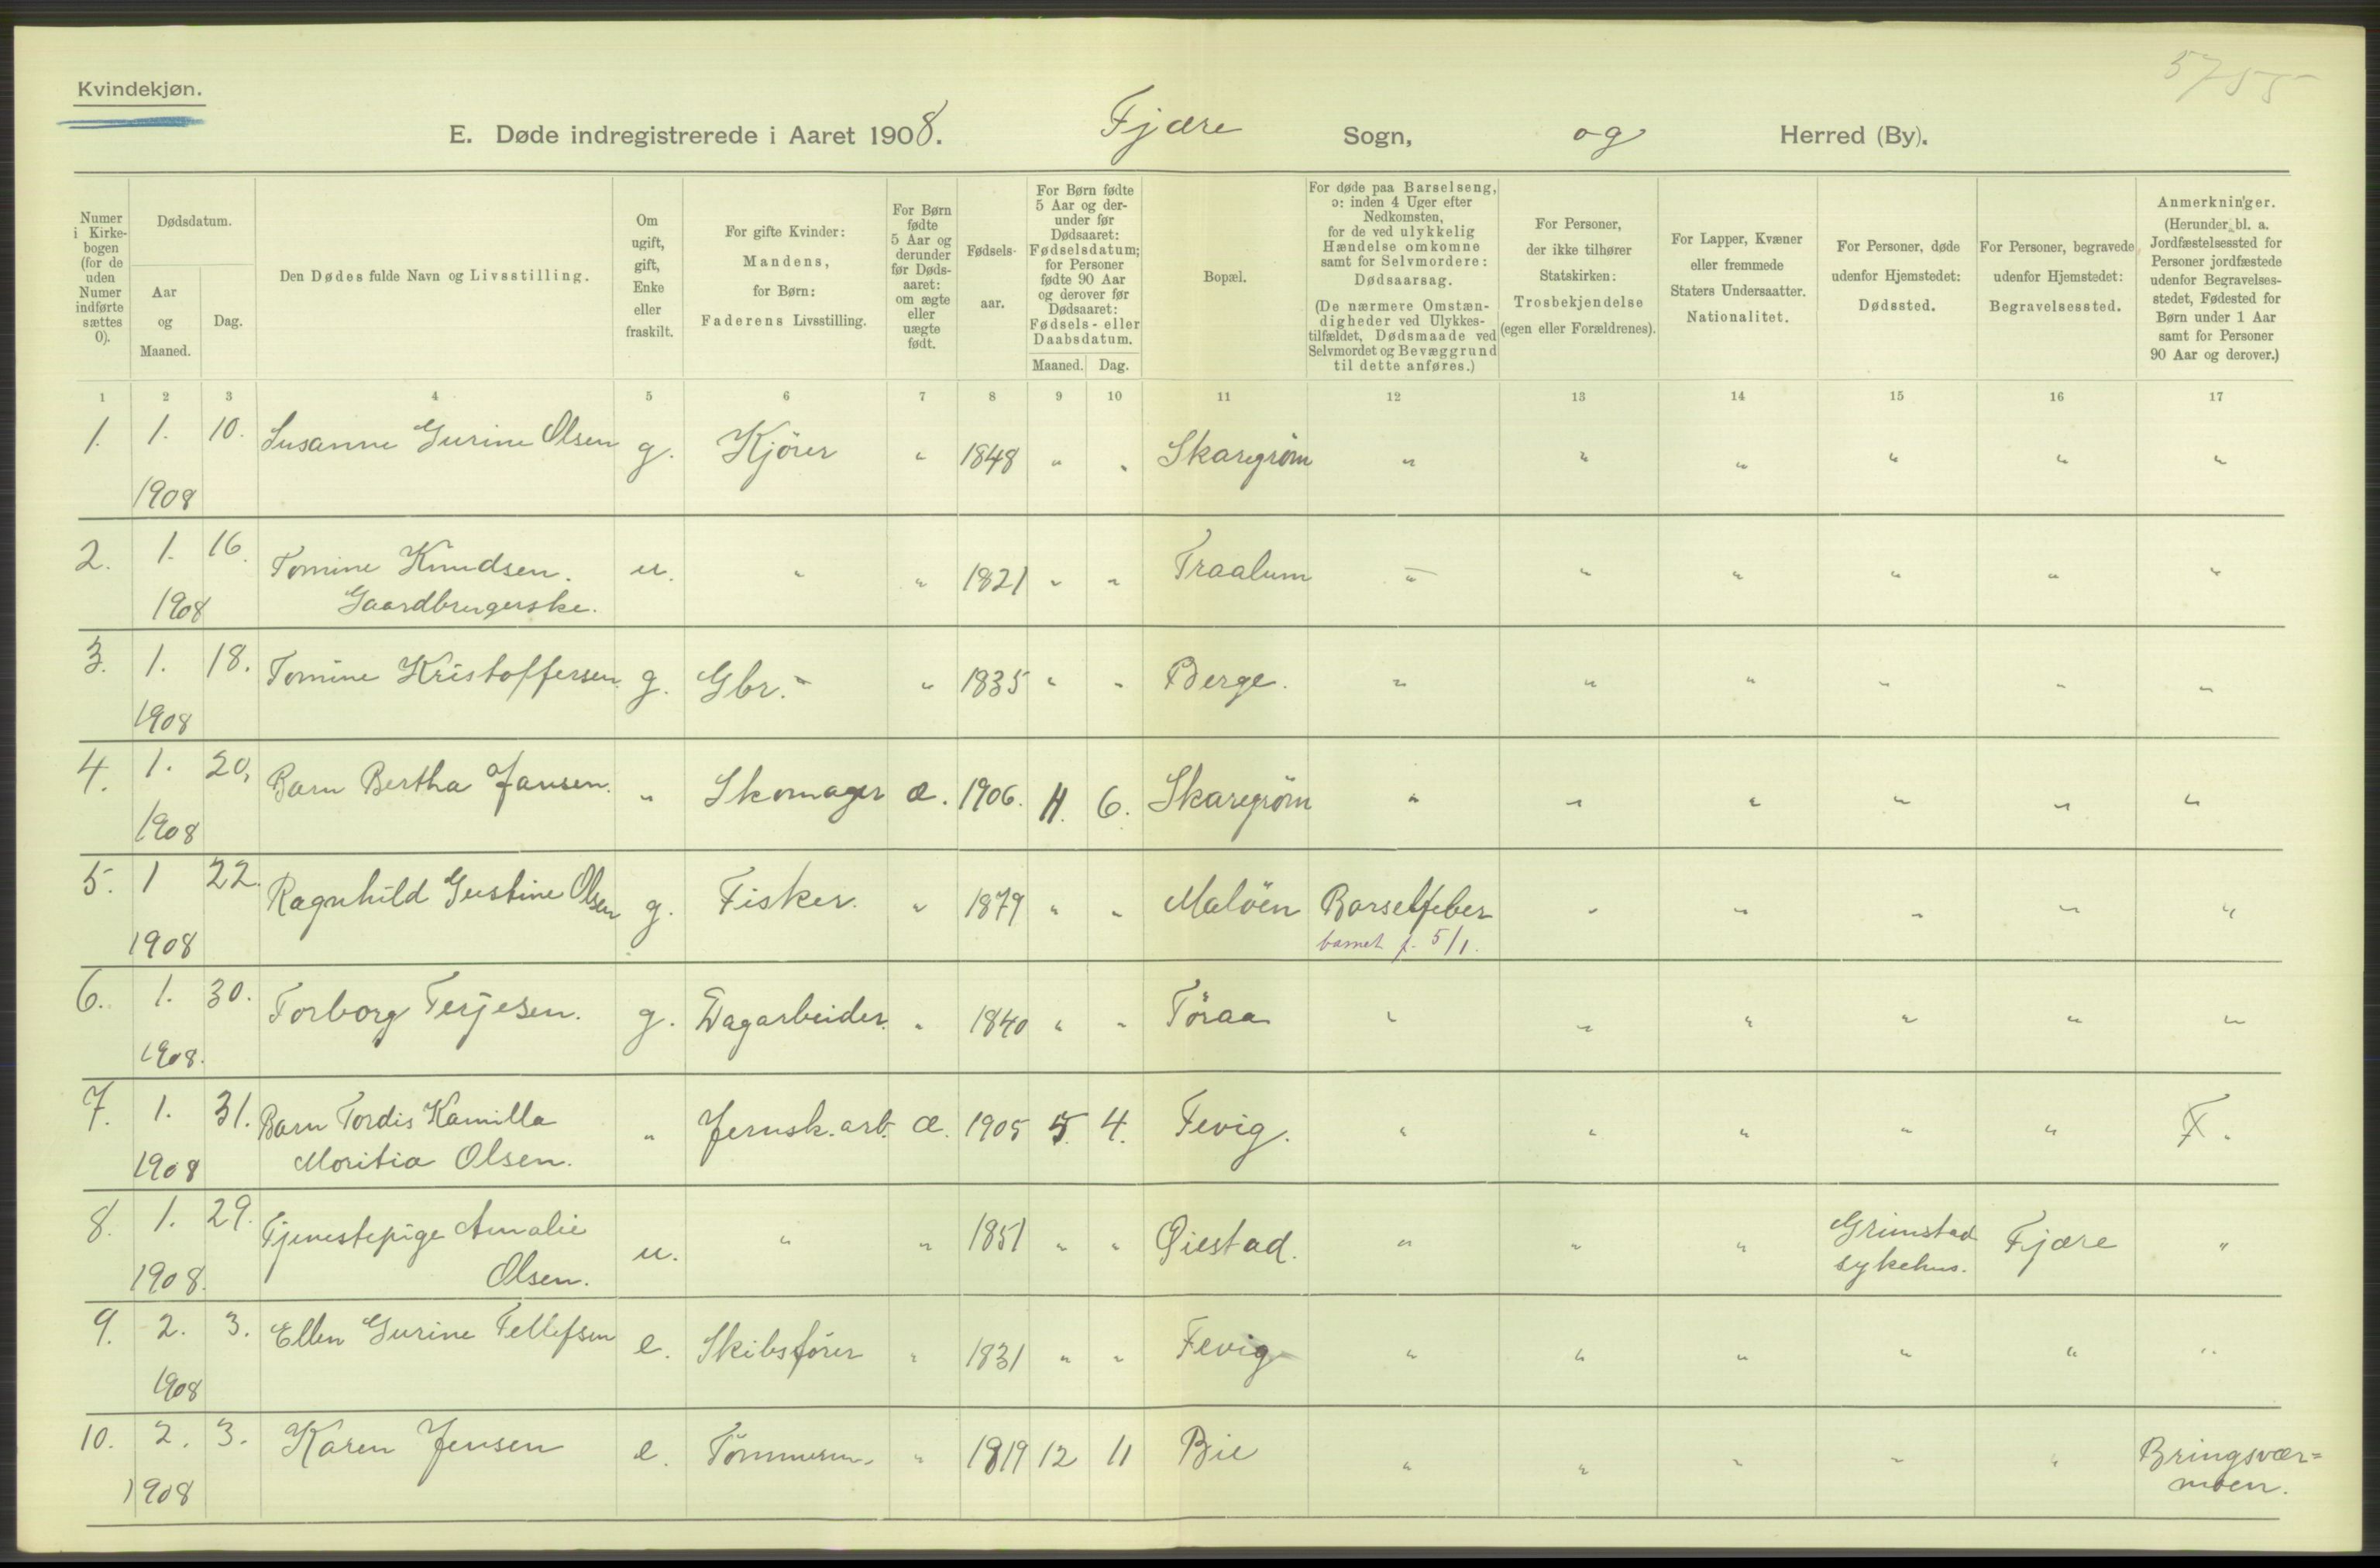 5755
Kvindekjøn.
E. Døde indregistrerede i Aaret 1908. Fjære Sogn, og Herred (By).
Numer i Kirkebogen (for de uden Numer indførte sættes 0).
Dødsdatum.
Aar og Maaned.
Dag.
Den Dødes fulde Navn og Livsstilling.
Om ugift, gift, Enke eller fraskilt.
For gifte Kvinder: Mandens, for Børn: Faderens Livsstilling.
For Børn fødte 5 Aar og derunder før Dødsaaret: om ægte eller uægte født.
Fødselsaar.
For Børn fødte 5 Aar og derunder før Dødsaaret: Fødselsdatum; for Personer fødte 90 Aar og derover før Dødsaaret: Fødsels- eller Daabsdatum.
Maaned. Dag.
Bopæl.
For døde paa Barselseng, ɔ: inden 4 Uger efter Nedkomsten, for de ved ulykkelig Hændelse omkomne samt for Selvmordere: Dødsaarsag.
(De nærmere Omstændigheder ved Ulykkestilfældet, Dødsmaade ved Selvmordet og Bevæggrund til dette anføres.)
For Personer, der ikke tilhører Statskirken: Trosbekjendelse (egen eller Forældrenes).
For Lapper, Kvæner eller fremmede Staters Undersaatter. Nationalitet.
For Personer, døde udenfor Hjemstedet: Dødssted.
For Personer, begravede udenfor Hjemstedet: Begravelsessted.
Anmerkninger.
(Herunder bl. a. Jordfæstelsessted for Personer jordfæstede udenfor Begravelsesstedet, Fødested for Børn under 1 Aar samt for Personer 90 Aar og derover.)
1 2 3 4 5 6 7 8 9 10 11 12 13 14 15 16 17
1. 1. 10. Susanne Gurine Olsen g. Kjörer " 1848 " " Skaregröm " " " " " "
1908
2. 1. 16. Tomine Knudsen. u. " " 1821 " " Traalum " " " " " "
1908 Gaardbrugerske.
3. 1. 18. Tomine Kristoffersen g. Gbr. " " 1835 " " Berge. " " " " " "
1908
4. 1. 20, Barn Bertha Jansen. " Skomager æ. 1906. 11. 6. Skaregröm " " " " " "
1908
5. 1 22. Ragnhild Gustine Olsen g. Fisker. " 1879 " " Malöen Barselfeber " " " " "
1908 barnet f. 5/1.
6. 1. 30. Torborg Terjesen. g. Dagarbeider. " 1840 " " Töraa " " " " " "
1908.
7. 1. 31. Barn Tordis Kamilla " Jernsk. arb. æ. 1905 5. 4. Fevig. " " " " "
1908 Moritia Olsen.
8. 1. 29. Tjenestepige Amalie u. " " 1851 " " Öiestad. " " " Grimstad sykehus. Fjære "
1908. Olsen.
9. 2. 3. Ellen Gurine Tellefsen e. Skibsförer " 1831 " " Fevig " " " " " "
1908
10. 2. 3. Karen Jensen e. Tömmerm. " 1819 12 11 Bie " " " " " Bringsvær=
1908 moen.